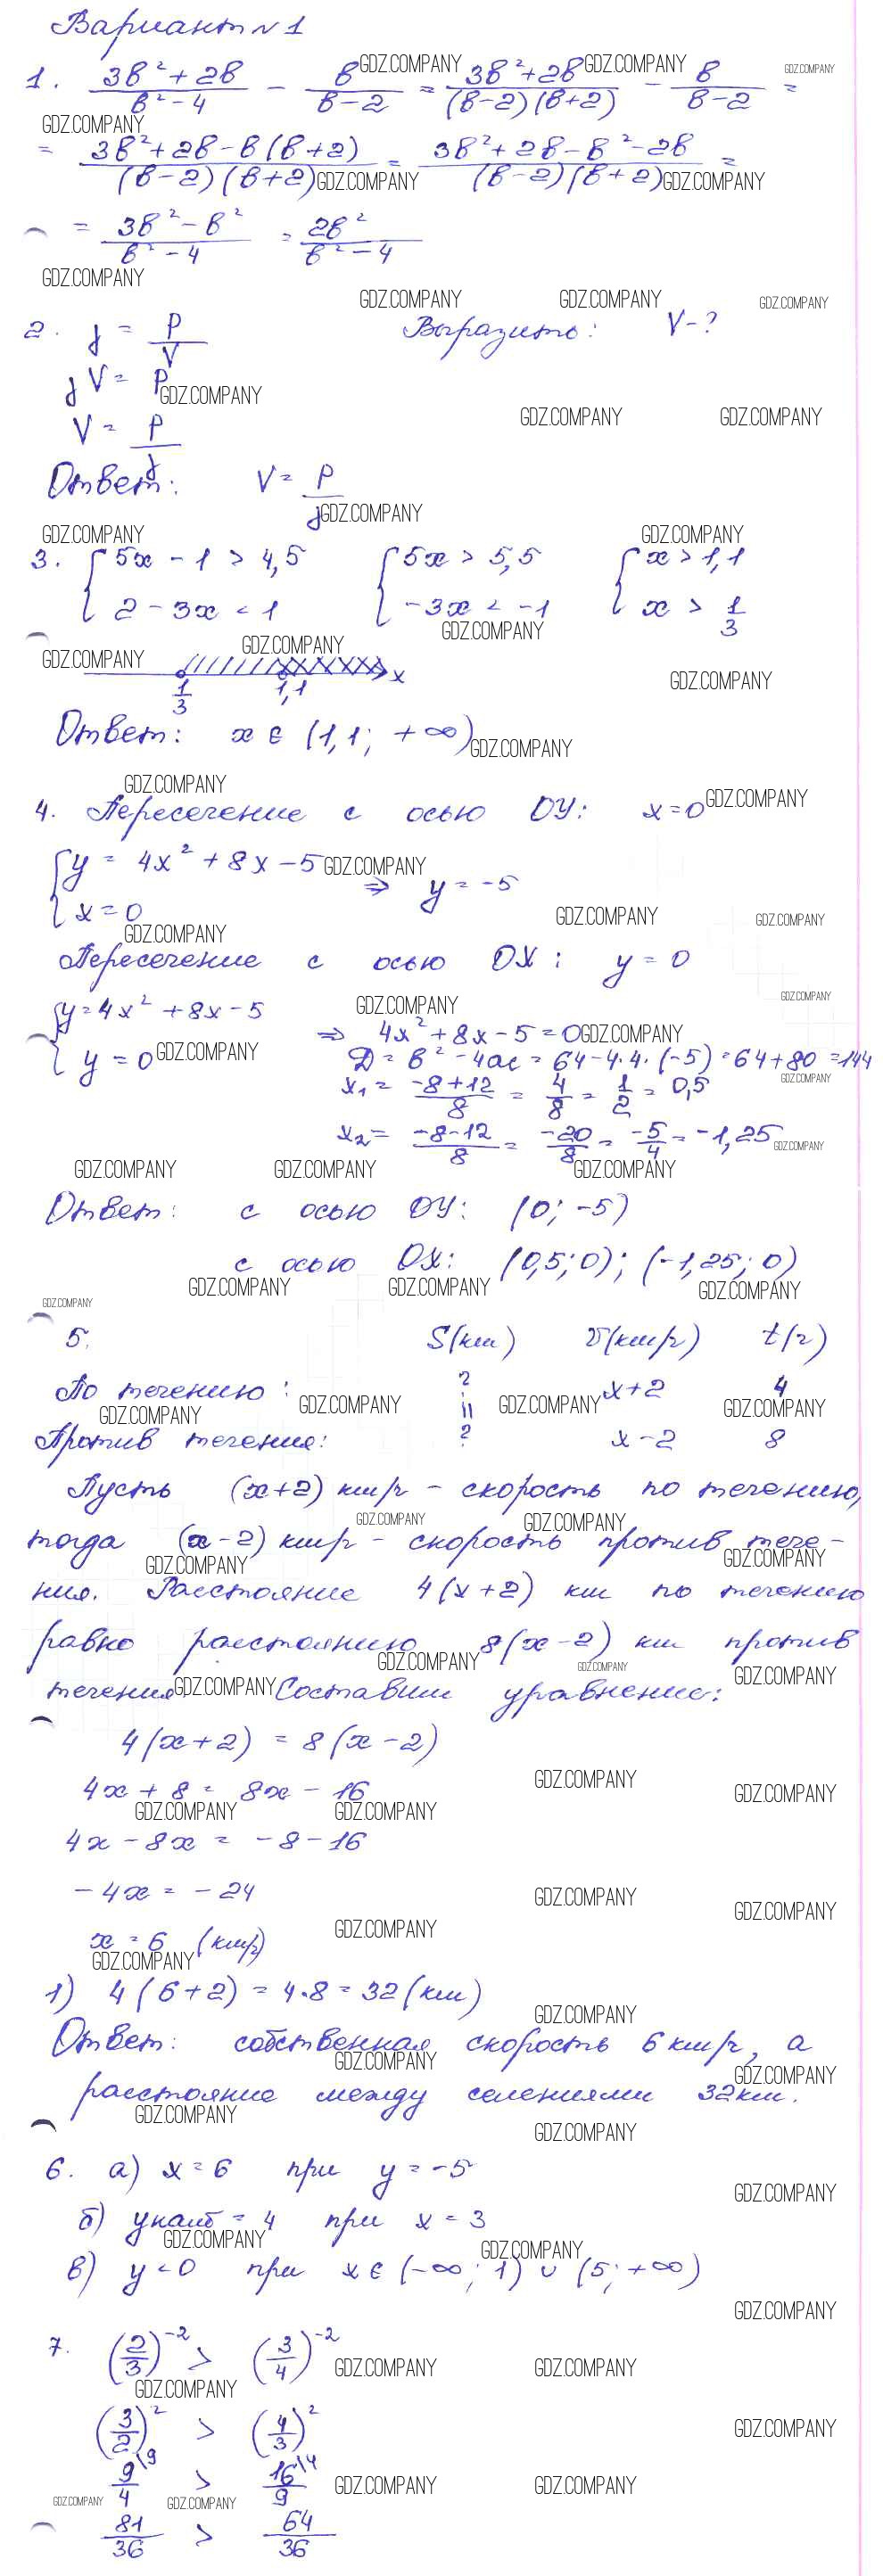 Вариант №1
1. (3в²+2в)/(в²-4) - в/(в-2) = (3в²+2в)/((в-2)(в+2)) - в/(в-2) =
= (3в²+2в-в(в+2))/((в-2)(в+2)) = (3в²+2в-в²-2в)/((в-2)(в+2)) =
= (3в²-в²)/(в²-4) = 2в²/(в²-4)
2. j = P/V Выразить: V-?
jV = P
V = P/j
Ответ: V = P/j
3. { 5x - 1 > 4,5 { 5x > 5,5 { x > 1,1
2 - 3x < 1 -3x < -1 x > 1/3
1/3 1,1 x
Ответ: x ∈ (1,1; +∞)
4. Пересечение с осью ОУ: x=0
{ y = 4x² + 8x - 5
x = 0 ⇒ y = -5
Пересечение с осью ОХ: y = 0
{ y = 4x² + 8x - 5
y = 0 ⇒ 4x² + 8x - 5 = 0
D = в² - 4ac = 64 - 4·4·(-5) = 64 + 80 = 144
x₁ = (-8+12)/8 = 4/8 = 1/2 = 0,5
x₂ = (-8-12)/8 = -20/8 = -5/4 = -1,25
Ответ: с осью ОУ: (0; -5)
с осью ОХ: (0,5; 0); (-1,25; 0)
5. S(км) V(км/ч) t(ч)
По течению: ? x+2 4
"
Против течения: ? x-2 8
Пусть (x+2) км/ч - скорость по течению,
тогда (x-2) км/ч - скорость против тече-
ния. Расстояние 4(x+2) км по течению
равно расстоянию 8(x-2) км против
течения. Составим уравнение:
4(x+2) = 8(x-2)
4x + 8 = 8x - 16
4x - 8x = -8 - 16
-4x = -24
x = 6 (км/ч)
1) 4(6+2) = 4·8 = 32 (км)
Ответ: собственная скорость 6 км/ч, а
расстояние между селениями 32 км.
6. а) x = 6 при y = -5
б) yнаиб = 4 при x = 3
в) y < 0 при x ∈ (-∞; 1) ∪ (5; +∞)
7. (2/3)⁻² > (3/4)⁻²
(3/2)² > (4/3)²
9/4\9 > 16/9\4
81/36 > 64/36
GDZ.COMPANY